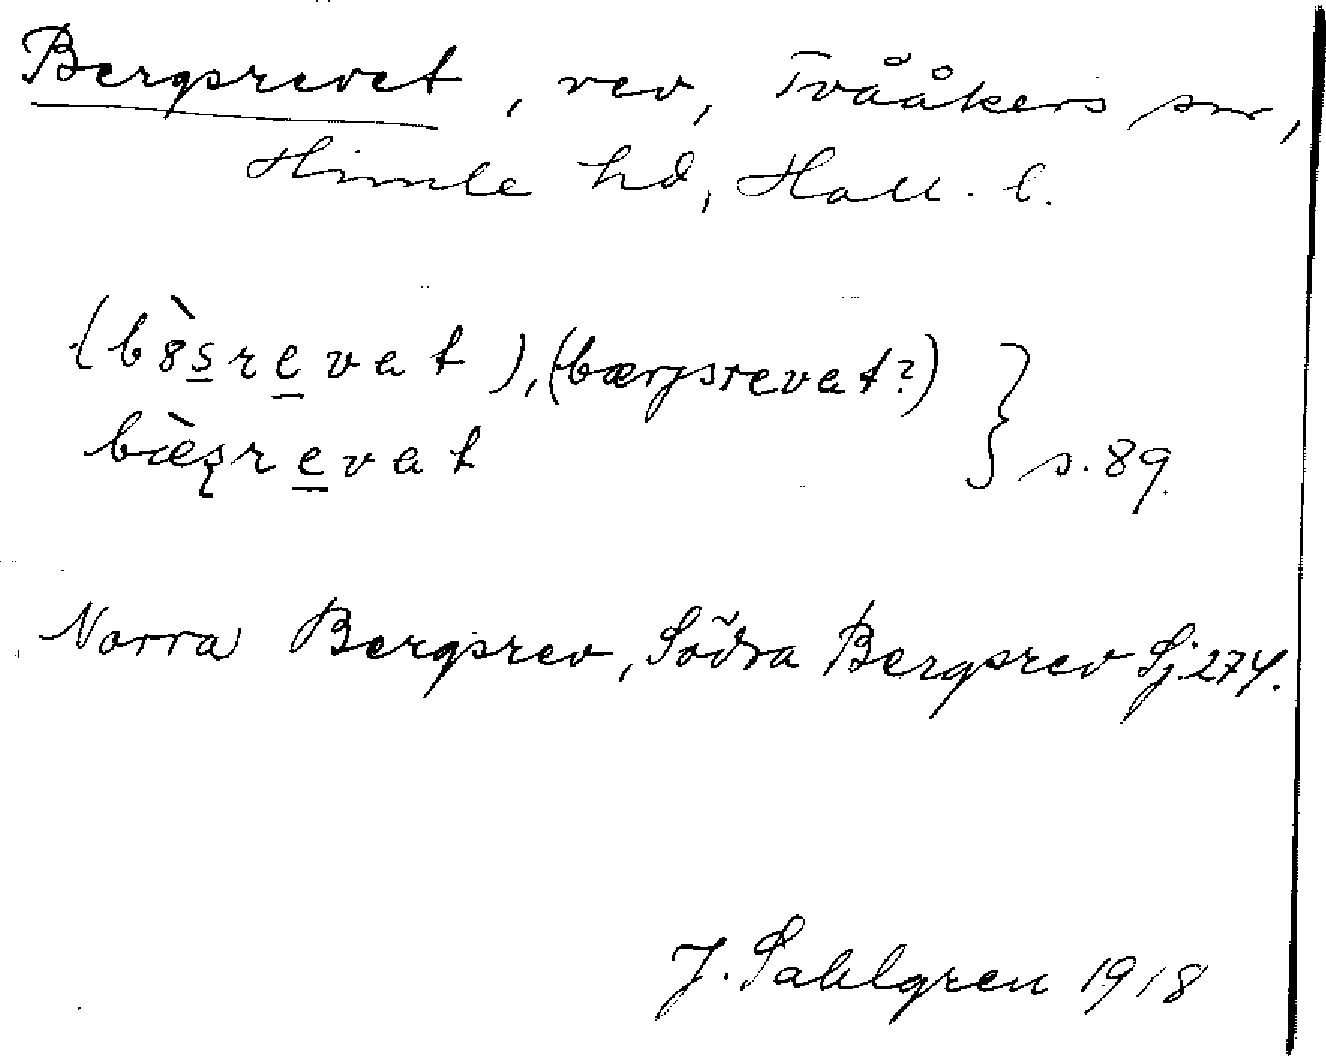 Bergsrevet, rev, Tvååkers sn,
Himle hd, Hall. l.
(b8̀s̲re̲vat), (bærgsrevat?)
bæ̀sre̲vat } s. 89.
Norra Bergsrev, Södra Bergsrev Sj. 274.
J. Sahlgren 1918